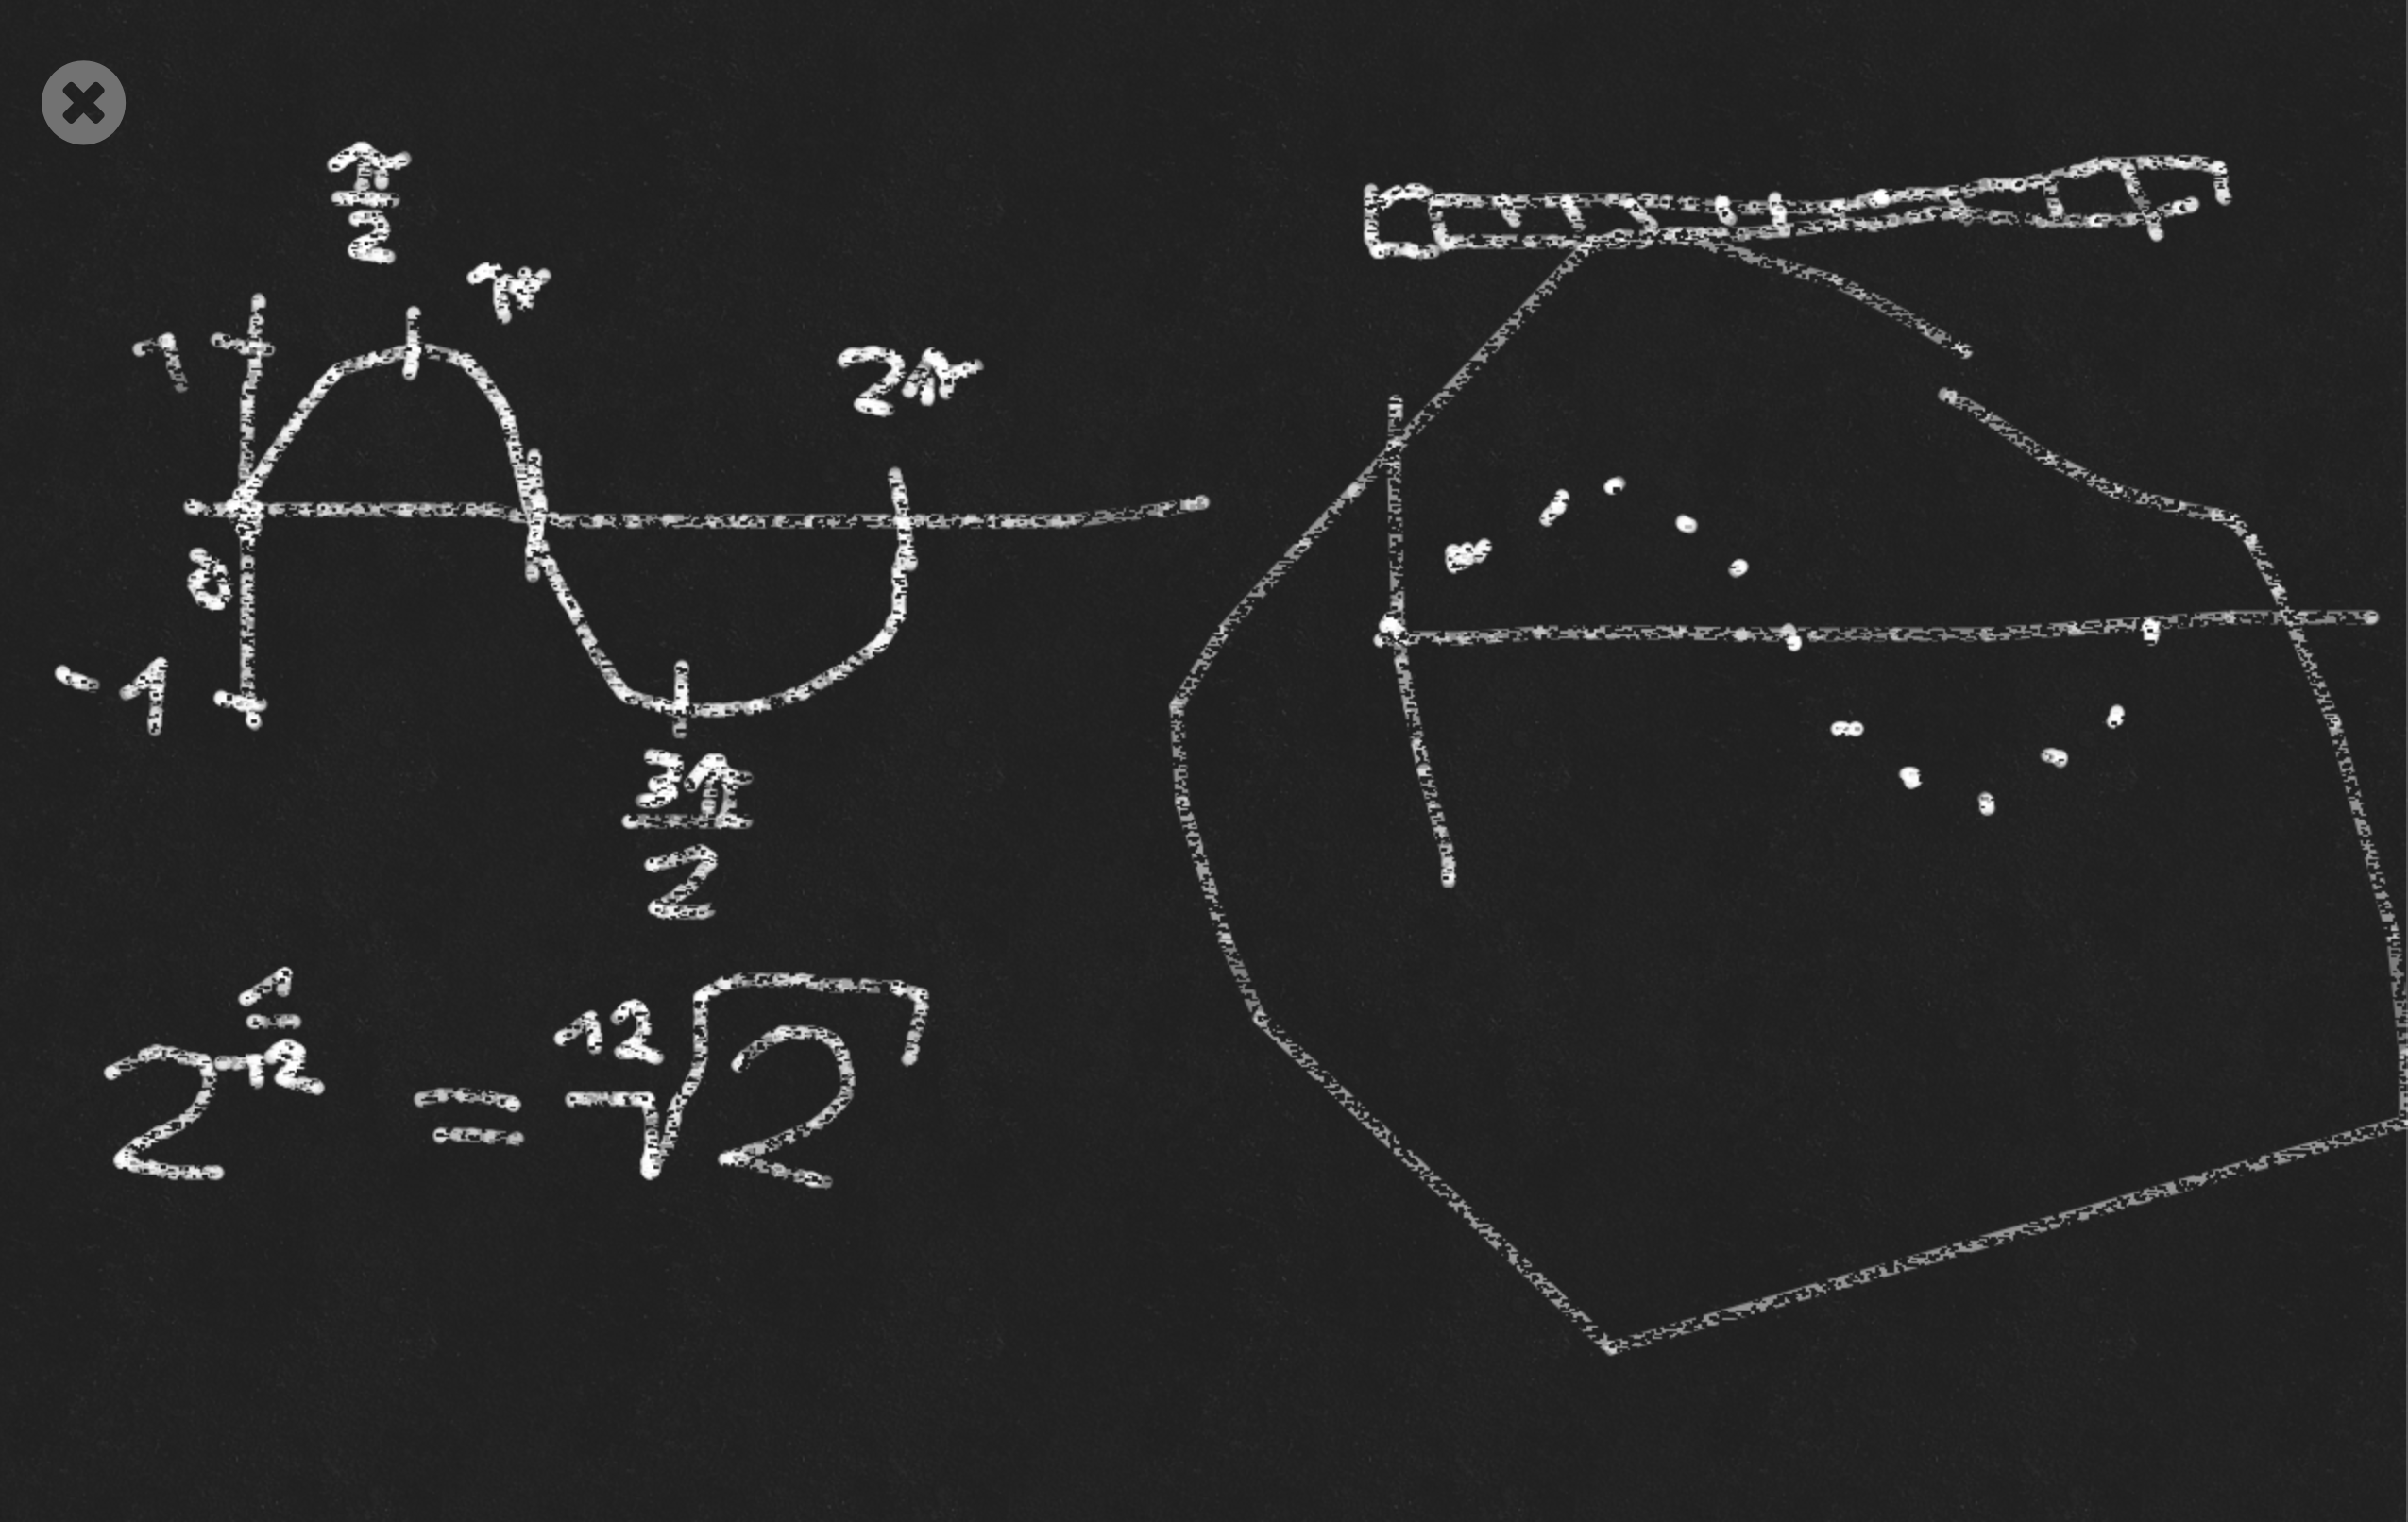 π/2
π
2π
1
0
-1
3π/2
2^(1/12) = ¹²√2